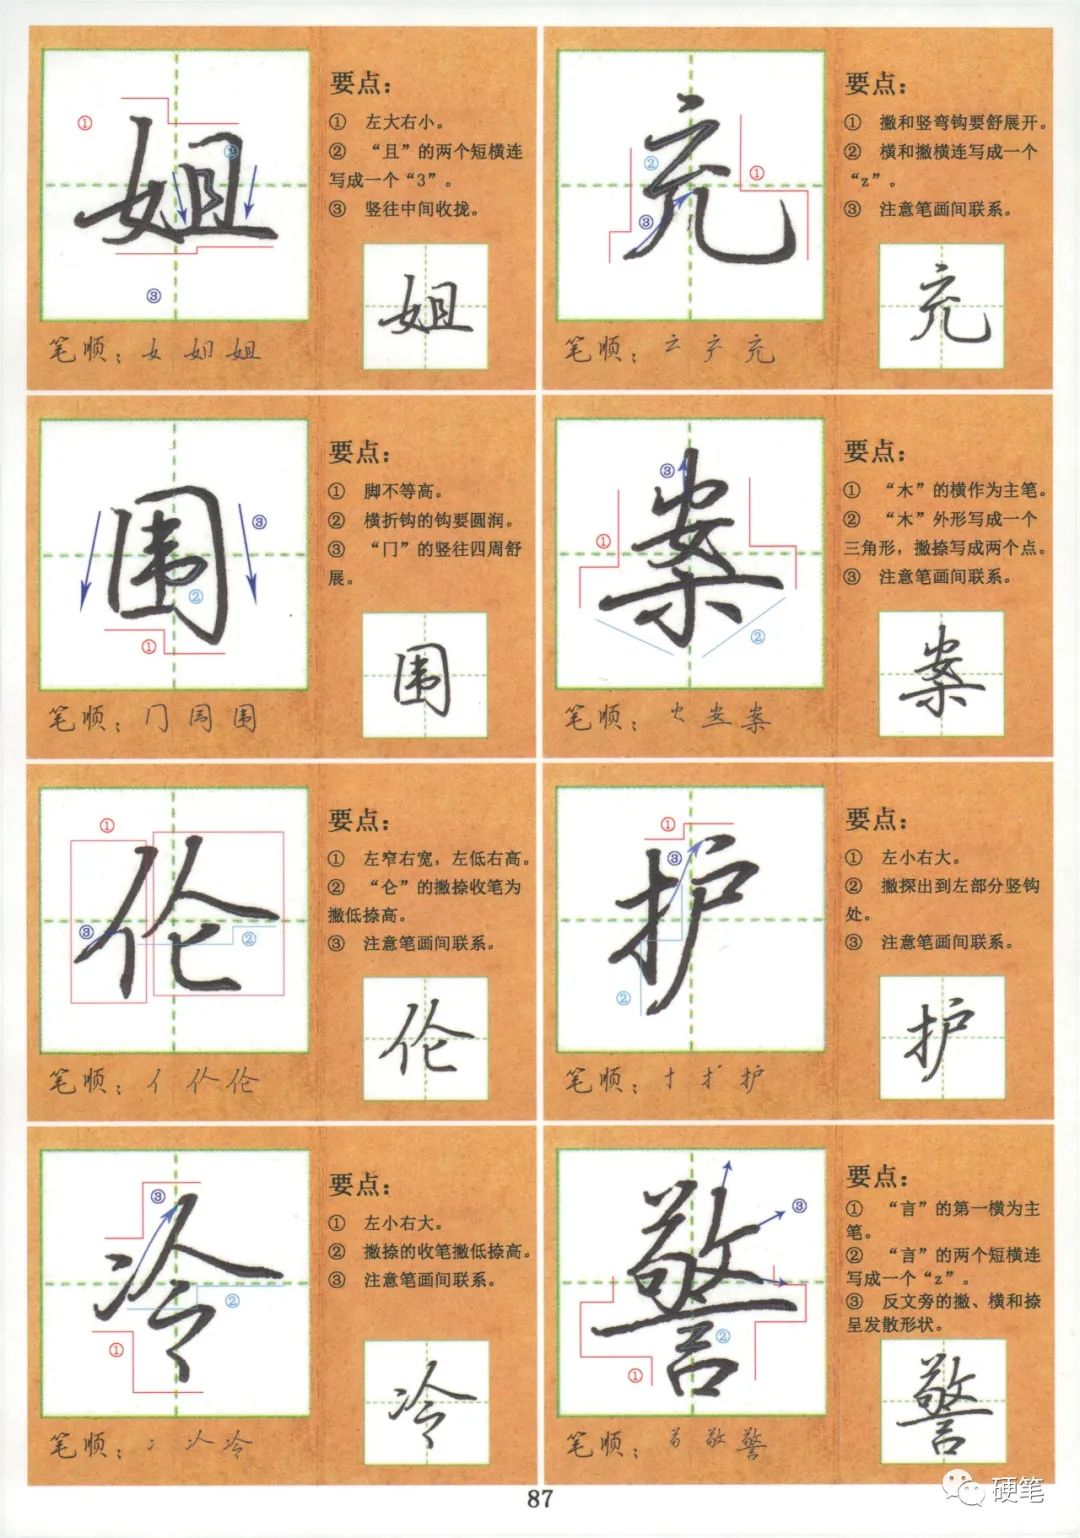 姐
要点：
① 左大右小。
② “且”的两个短横连
写成一个“3”。
③ 竖往中间收拢。
① ② ③
姐
笔顺：女 如 姐
充
要点：
① 撇和竖弯钩要舒展开。
② 横和撇横连写成一个
“z”。
③ 注意笔画间联系。
① ② ③
充
笔顺：
充
围
要点：
① 脚不等高。
② 横折钩的钩要圆润。
③ “冂”的竖往四周舒
展。
① ② ③
围
笔顺：冂
围
案
要点：
① “木”的横作为主笔。
② “木”外形写成一个
三角形，撇捺写成两个点。
③ 注意笔画间联系。
① ② ③
案
笔顺：
案
伦
要点：
① 左窄右宽，左低右高。
② “仑”的撇捺收笔为
撇低捺高。
③ 注意笔画间联系。
① ② ③
伦
笔顺：亻
伦
护
要点：
① 左小右大。
② 撇探出到左部分竖钩
处。
③ 注意笔画间联系。
① ② ③
护
笔顺：
护
冷
要点：
① 左小右大。
② 撇捺的收笔撇低捺高。
③ 注意笔画间联系。
① ② ③
冷
笔顺：冫
冷
警
要点：
① “言”的第一横为主
笔。
② “言”的两个短横连
写成一个“z”。
③ 反文旁的撇、横和捺
呈发散形状。
① ② ③
警
笔顺：苟 敬 警
87
硬笔